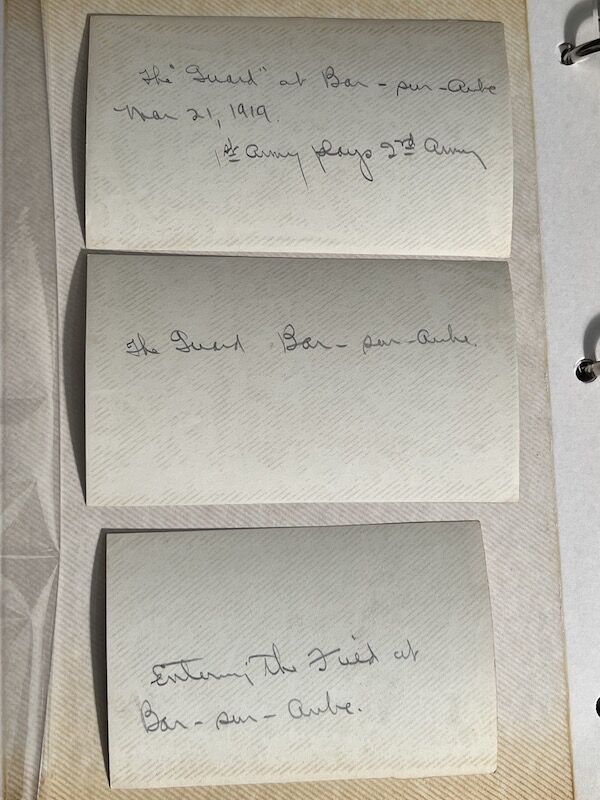 The "Guard" at Bar-sur-Aube
Mar 21, 1919.
1st Army plays 2nd Army
The Guard Bar-sur-Aube.
Entering The Field at
Bar-sur-Aube.